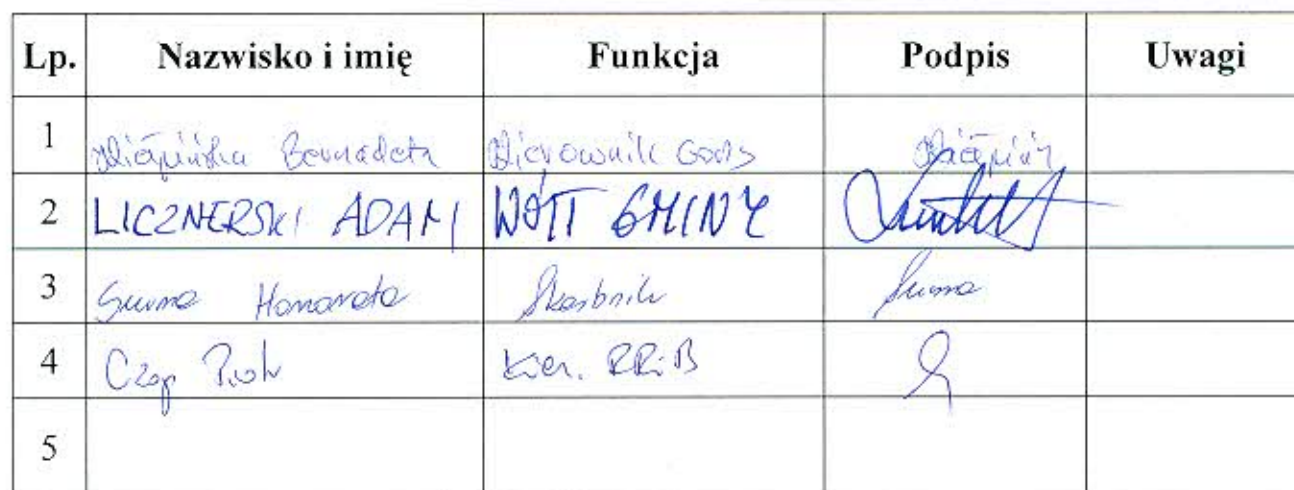 Lp. Nazwisko i imię Funkcja Podpis Uwagi
1 Bernadeta Kierownik GOPS
2 LICZNERSKI ADAM WÓJT GMINY
3 Surma Honorata Skarbnik Surma
4 Czap Piotr Kier. RRiB
5